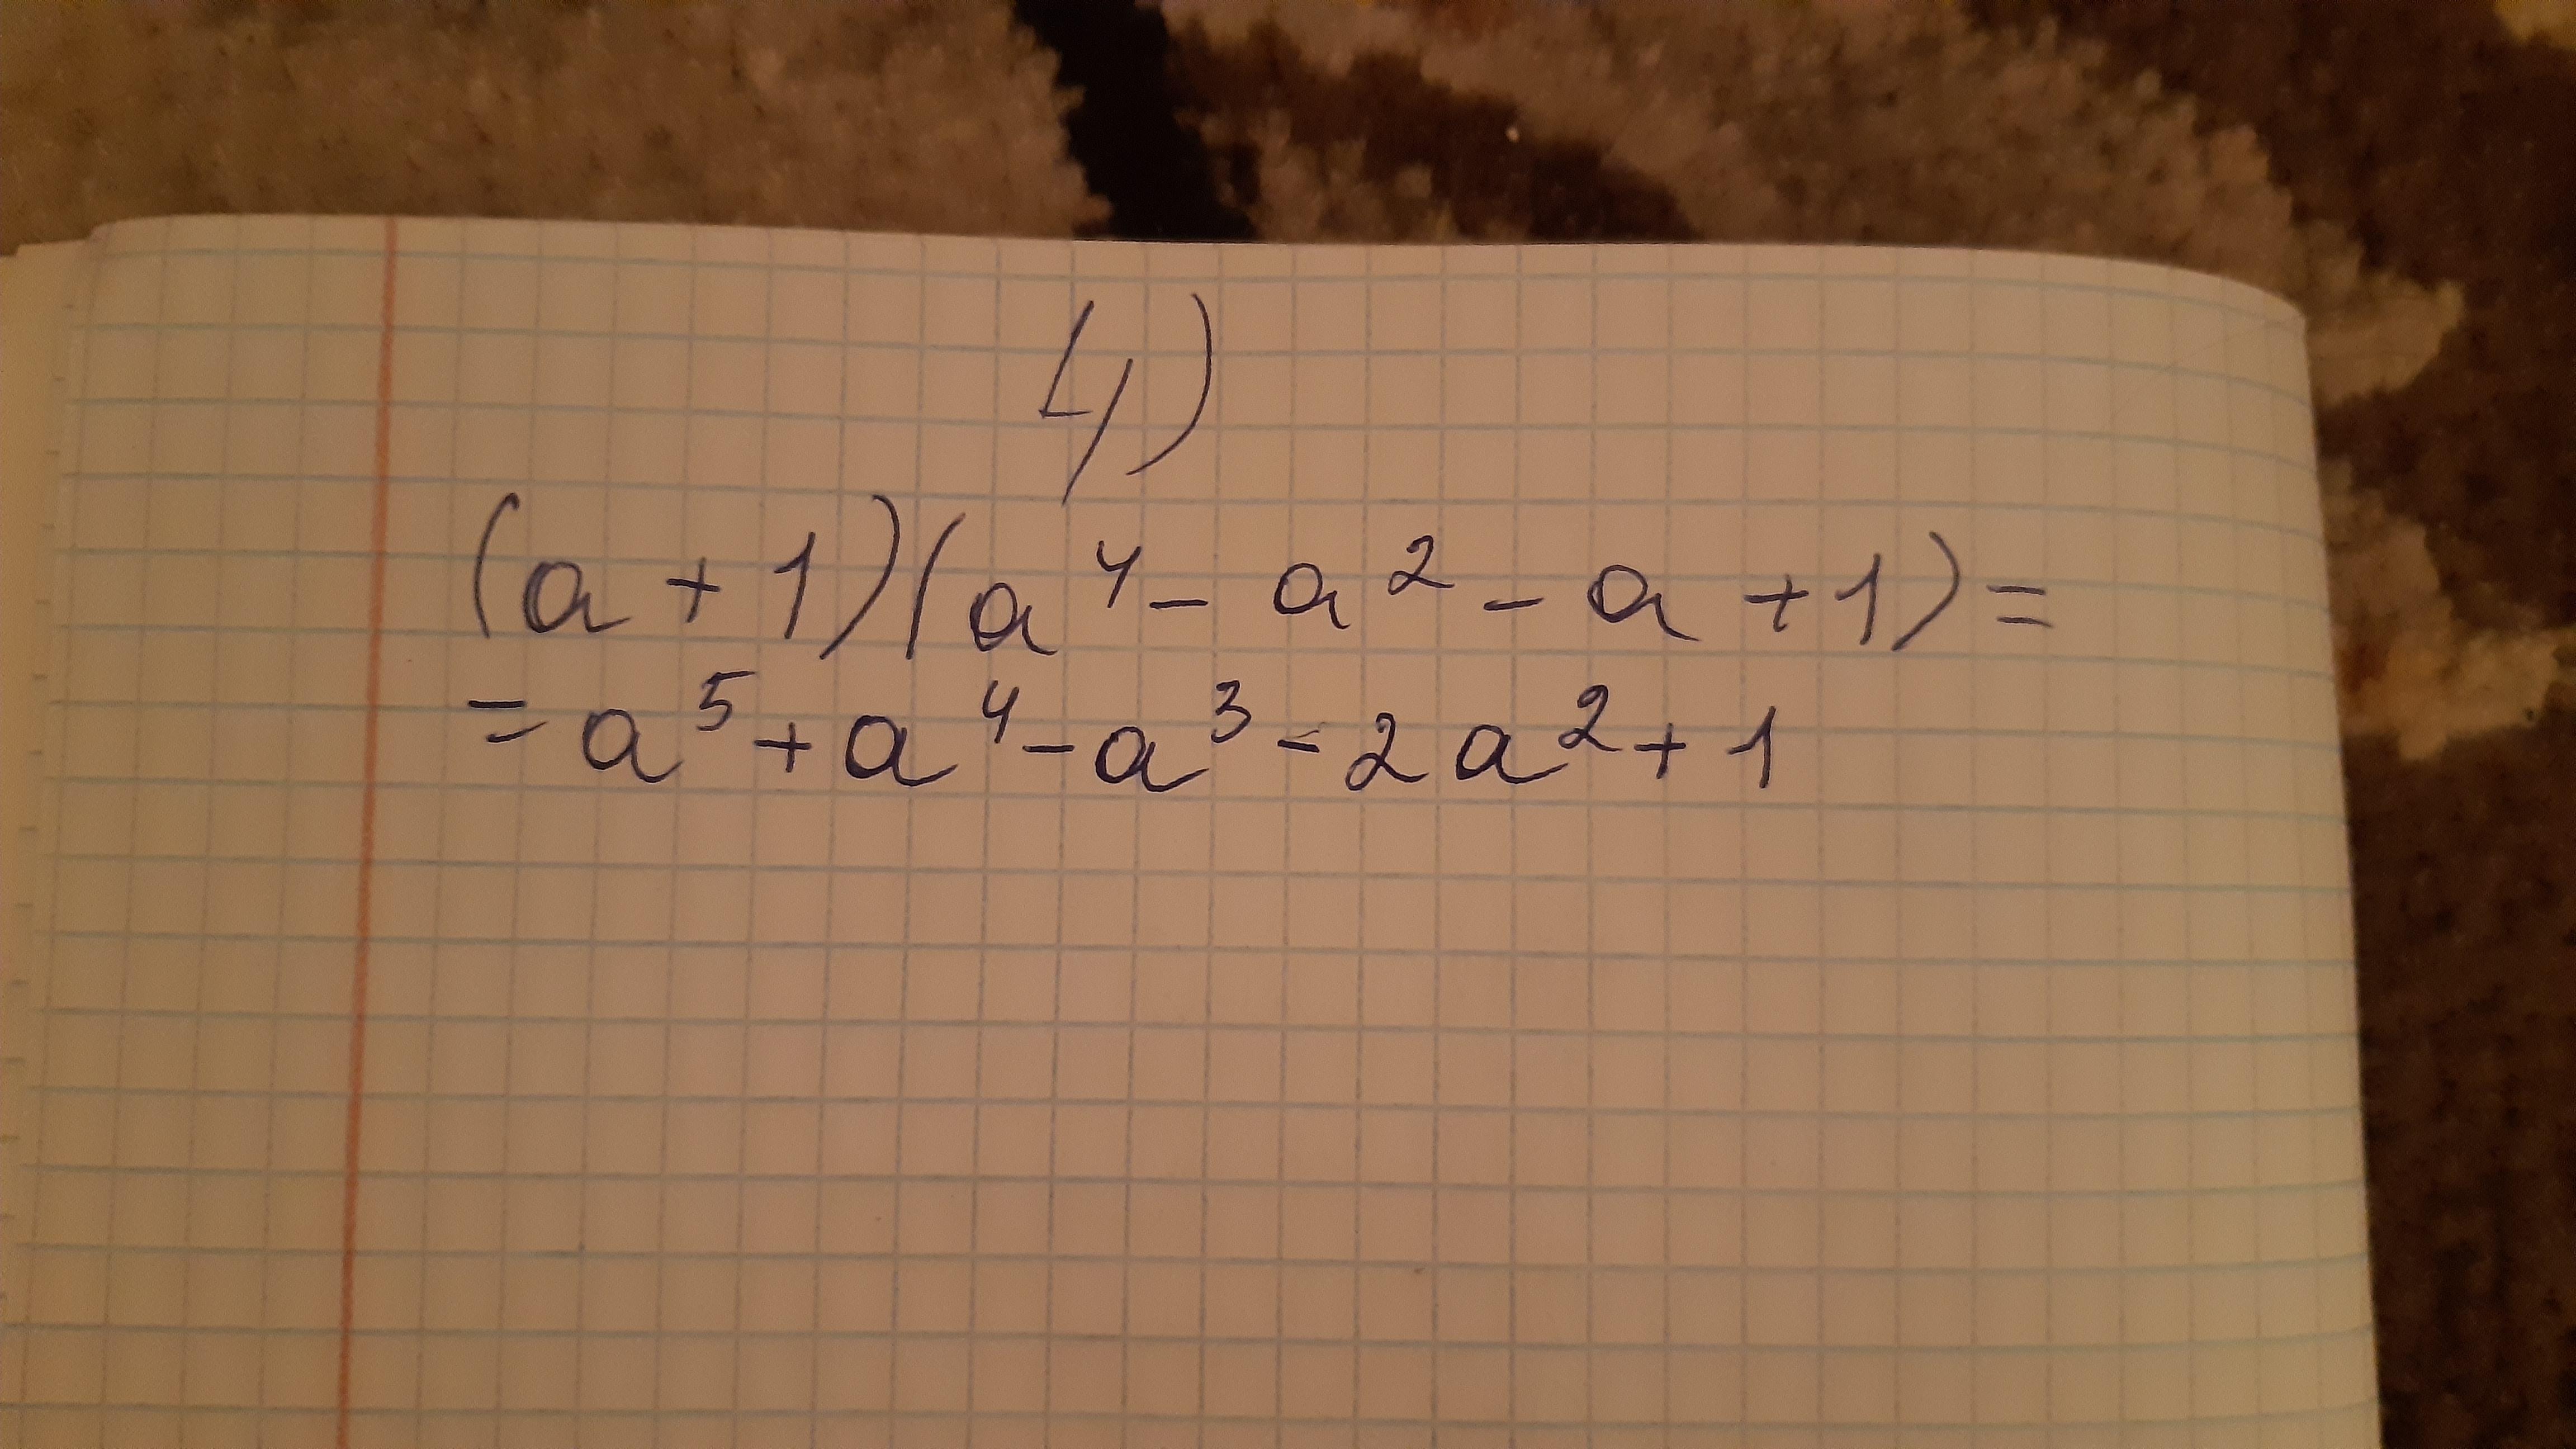 4)
(a + 1)(a⁴ - a² - a + 1) =
= a⁵ + a⁴ - a³ - 2a² + 1